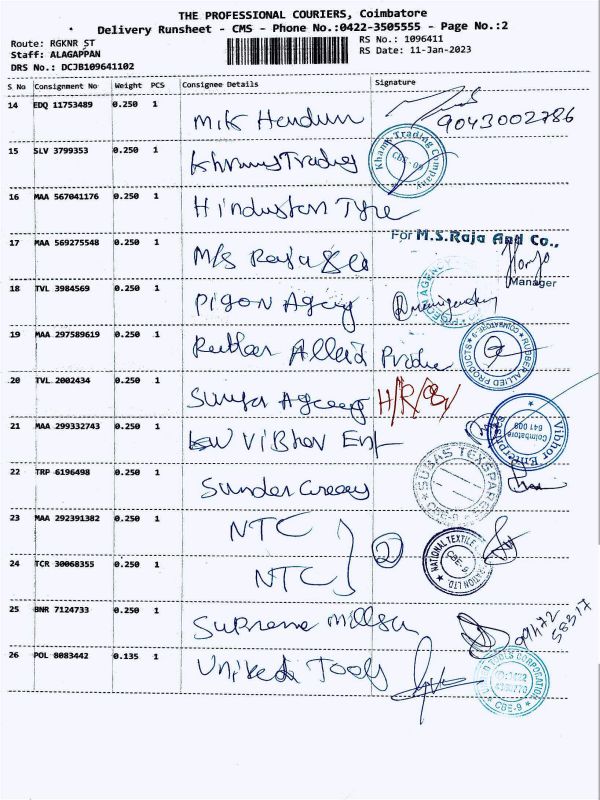 THE PROFESSIONAL COURIERS, Coimbatore
Delivery Runsheet - CMS - Phone No.:0422-3505555 - Page No.:2
Route: RGKNR ST
RS No.: 1096411
Staff: ALAGAPPAN
RS Date: 11-Jan-2023
DRS No.: DCJB109641102
S No Consignment No Weight PCS Consignee Details Signature
14 EDQ 11753489 0.250 1 M.K 9043002786
15 SLV 3799353 0.250 1 Khanna Trading
Khanna Trading Company CBE-09
16 MAA 567041176 0.250 1 Hindustan Tyre
17 MAA 569275548 0.250 1 M/s Raja & Co
For M.S.Raja And Co.,
Manager
18 TVL 3984569 0.250 1 Pigon Agency
19 MAA 297589619 0.250 1 Rubber Allied Produ
RUBBER ALLIED PRODUCTS COIMBATORE-9
20 TVL 2002434 0.250 1 Surya Agency
21 MAA 299332743 0.250 1 Vibhor Ent
Vibhor Enterprises Coimbatore 641 009
22 TRP 6196498 0.250 1 Sunder
SUBAS TEXSPARES CBE-9
23 MAA 292391382 0.250 1 NTC
2
24 TCR 30068355 0.250 1 NTC
NATIONAL TEXTILE CORPORATION LTD. CBE-9
25 BNR 7124733 0.250 1 Supreme Mill
26 POL 8083442 0.135 1 United Tools
TOOLS CORPORATION CBE-9